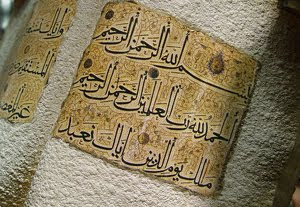 بسم الله الرحمن الرحيم
الحمد لله رب العالمين الرحمن الرحيم
ملك يوم الدين إياك نعبد
وإياك
المستقيم
غير